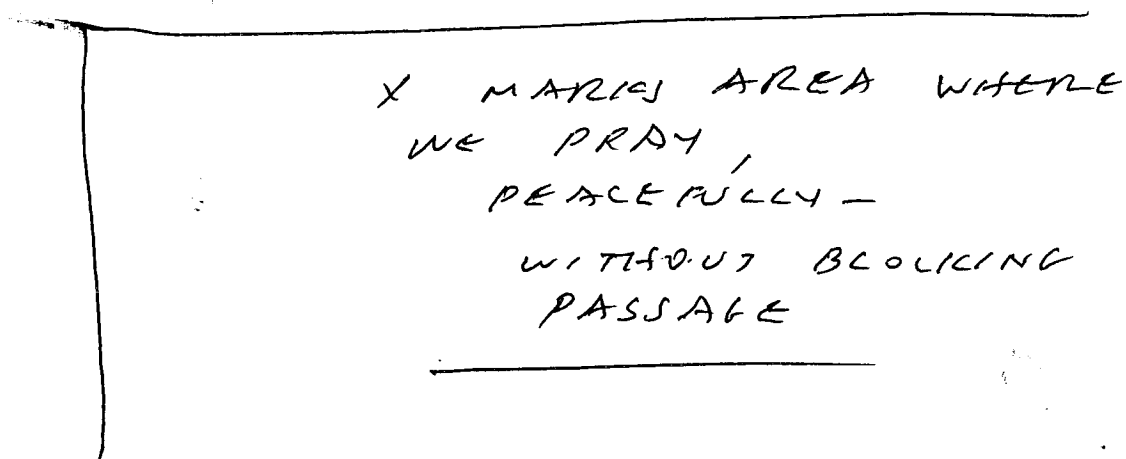 X MARKS AREA WHERE
WE PRAY,
PEACEFULLY –
WITHOUT BLOCKING
PASSAGE